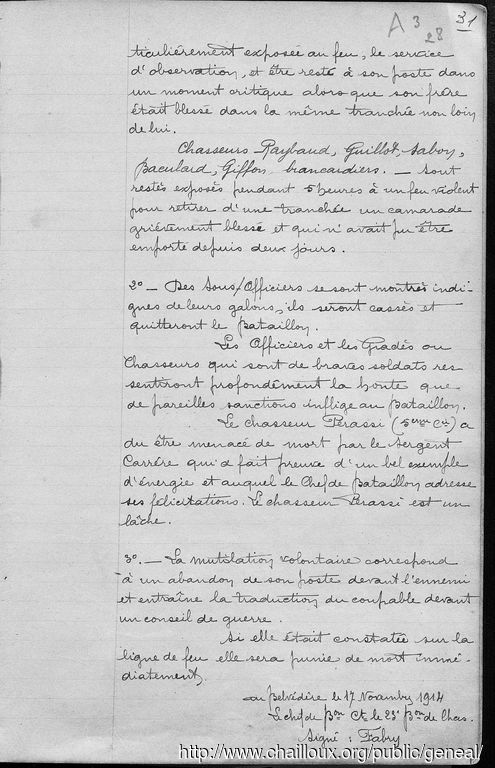 A 3
28
31
ticulièrement exposée au feu, le service
d'observation, et être resté à son poste dans
un moment critique alors que son frère
était blessé dans la même tranchée non loin
de lui.
Chasseurs Raybaud, Guillot, Sabon,
Baculard, Giffon, brancardiers. — Sont
restés exposés pendant 5 heures à un feu violent
pour retirer d'une tranchée un camarade
grièvement blessé et qui n'avait pu être
emporté depuis deux jours.
2º — Des Sous/Officiers se sont montrés indi-
gnes de leurs galons, ils seront cassés et
quitteront le bataillon.
Les Officiers et les Gradés ou
Chasseurs qui sont de braves soldats res
sentiront profondément la honte que
de pareilles sanctions inflige au bataillon.
Le chasseur Pérassi (5ème Cie) a
du être menacé de mort par le Sergent
Carrère qui a fait preuve d'un bel exemple
d'énergie et auquel le Chef de bataillon adresse
ses félicitations. Le chasseur Perassi est un
lâche.
3º. — La mutilation volontaire correspond
à un abandon de son poste devant l'ennemi
et entraîne la traduction du coupable devant
un conseil de guerre.
Si elle était constatée sur la
ligne de feu elle sera punie de mort immé-
diatement.
au Belvédère le 17 Novembre 1914
Le chef de Bon Ct le 23e Bon de Chas.
Signé : Fabry
http://www.chailloux.org/public/geneal/